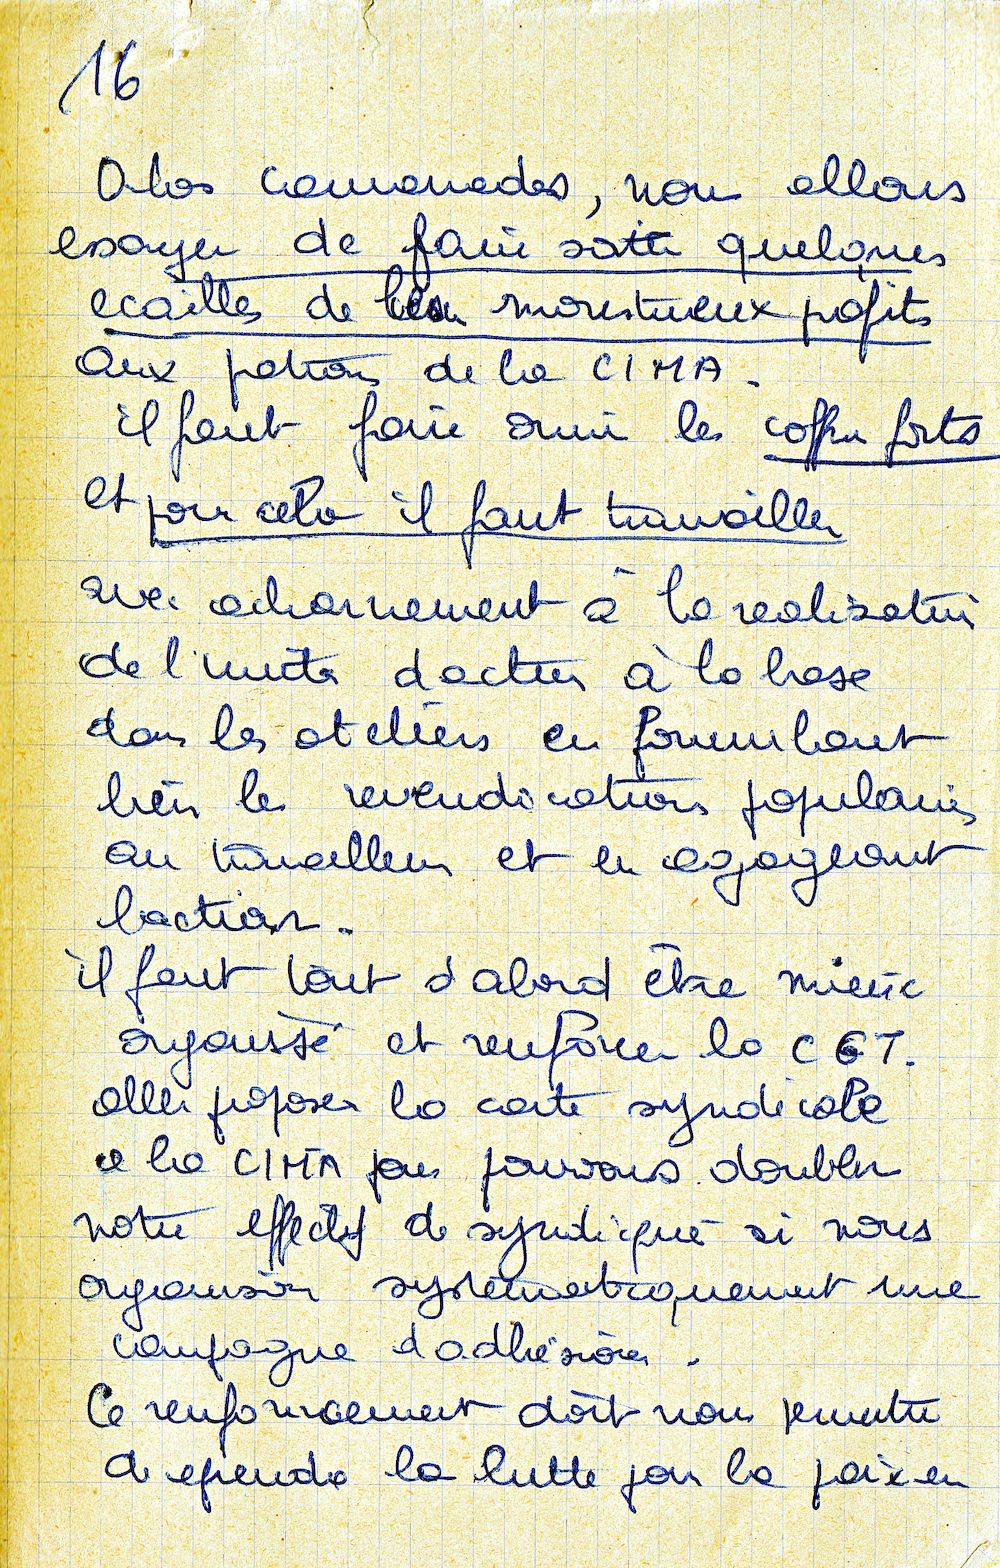 16
Alors camarades, nous allons
essayer de faire sortir quelques
ecailles de leur monstrueux profits
aux patrons de la CIMA.
il faut faire les coffre forts
Et pour cela il faut travailler
avec acharnement à la realisation
de l'unité d'action à la base
dans les ateliers en formulant
bien les revendications populaires
au travailleurs et en engageant
l'action.
il faut tout d'abord être mieux
organisé et renforcer la CGT.
aller proposer la carte syndicale
a la CIMA nous pouvons doubler
notre effectif de syndiqué si nous
organisons systematiquement une
campagne d'adhésion.
Ce renforcement doit nous permettre
de reprendre la lutte pour la paix en